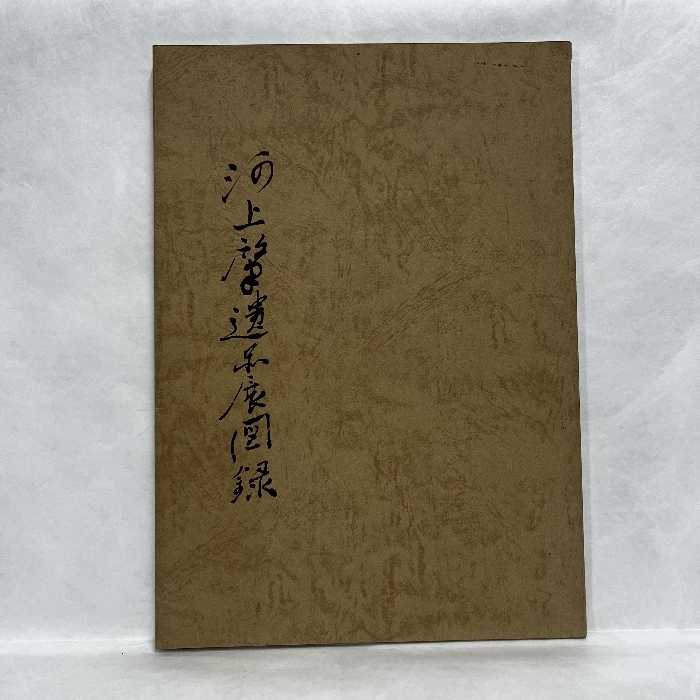 河上肇遺品展図録